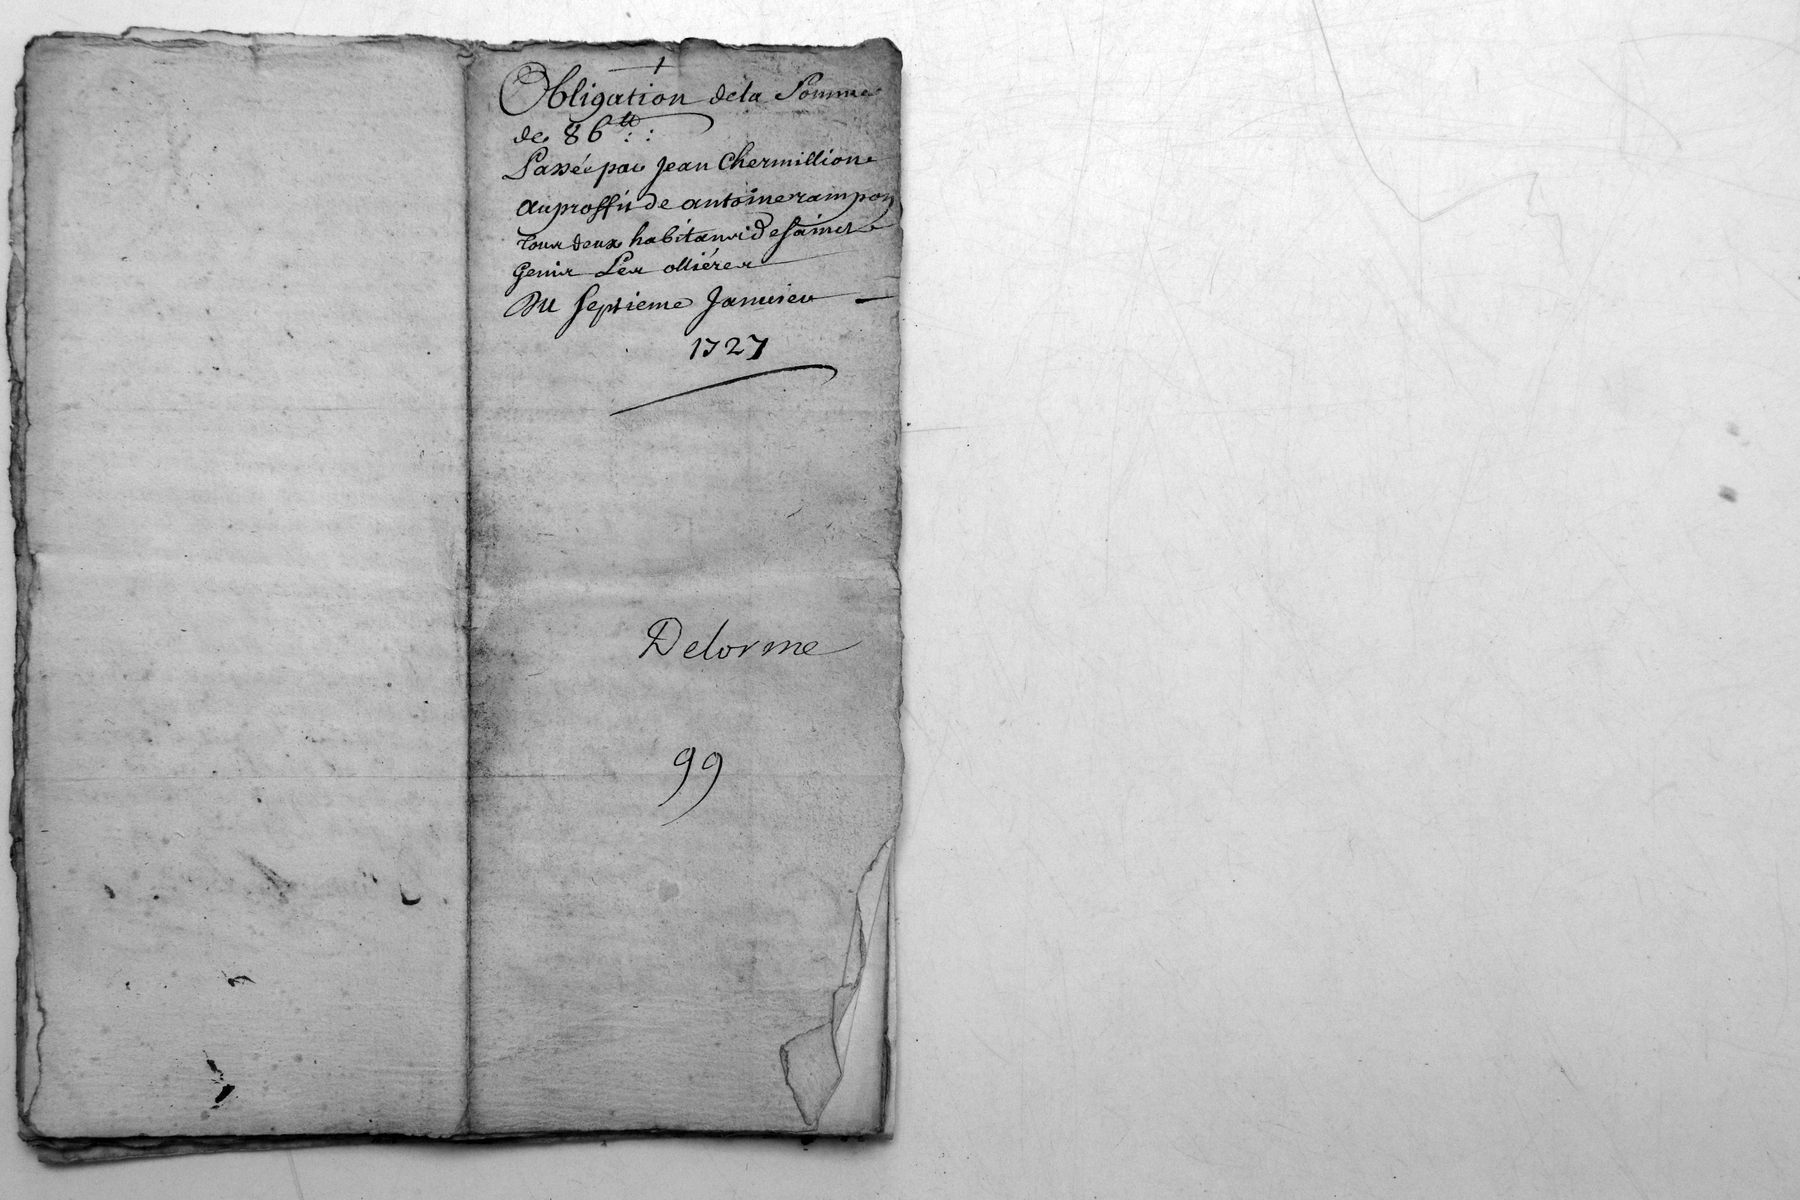 Obligation dela Somme
de 86tt : :
Passée par Jean Chermillion
au proffit de antoine rampon
tous deux habitans de sainct
Genis Les ollières
Du septieme Janvier
1727
Delorme
99